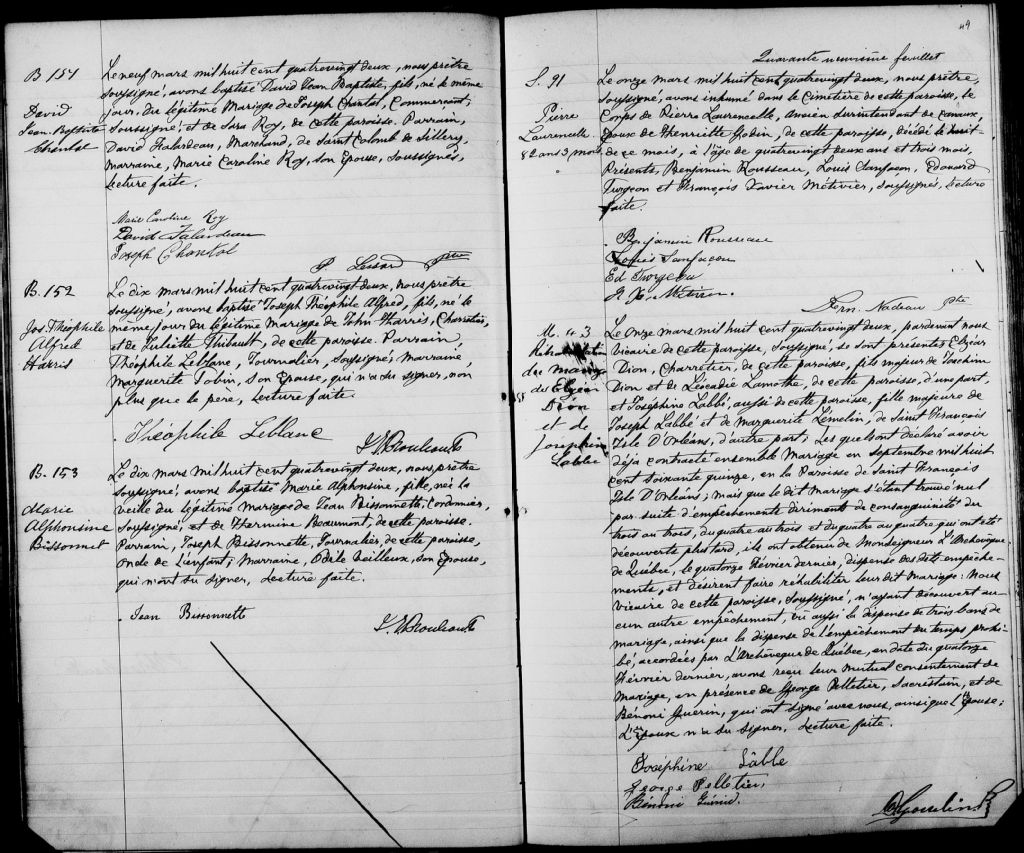 B 151
David
Jean-Baptiste
Chantal
Le neuf mars mil huit cent quatrevingt deux, nous prêtre
soussigné, avons baptisé David Jean Baptiste, fils, né le même
jour, du légitime Mariage de Joseph Chantal, Commercant,
soussigné, et de Sara Roy, de cette paroisse. Parrain,
David Falardeau, Marchand, de Saint Colomb de Sillery,
marraine, Marie Caroline Roy, son épouse, soussignés,
lecture faite.
Marie Caroline Roy
David Falardeau
Joseph Chantal
P. Lessard ptre
B. 152
Jos. Théophile
Alfred
Harris
Le dix mars mil huit cent quatrevingt deux, nous prêtre
soussigné, avons baptisé Joseph Théophile Alfred, fils, né le
même jour du légitime mariage de John Harris, Charretier,
et de Juliette Thibault, de cette paroisse. Parrain,
Théophile Leblanc, Journalier, soussigné; Marraine
Marguerite Tobin, son épouse, qui n'a su signer, non
plus que le père, Lecture faite.
Théophile Leblanc
B. 153
Marie
Alphonsine
Bissonnet
Le dix mars mil huit cent quatrevingt deux, nous, prêtre
soussigné, avons baptisé Marie Alphonsine, fille, née la
veille du légitime mariage de Jean Bissonnette, Cordonnier,
soussigné, et de Hermine Beaumont, de cette paroisse.
Parrain, Joseph Bissonnette, Journalier, de cette paroisse,
oncle de l'enfant; Marraine, Odile Veilleux, son épouse,
qui n'ont su signer, Lecture faite.
Jean Bissonnette
49
Quarante neuvième feuillet
S. 91
Pierre
Laurencelle
82 ans 3 mois
Le onze mars mil huit cent quatrevingt deux, nous prêtre,
soussigné, avons inhumé dans le Cimetière de cette paroisse, le
Corps de Pierre Laurencelle, Ancien surintendant de canaux,
époux de Henriette Godin, de cette paroisse, décédé le huit
de ce mois, à l'âge de quatrevingt deux ans et trois mois,
Présents, Benjamin Rousseau, Louis Sanfaçon, Edouard
Turgeon et François Xavier Métivier, soussignés, lecture
faite.
Benjamin Rousseau
Louis Sanfaçon
Ed Turgeon
F. X. Métivier.
Bern. Nadeau ptre
M. 3
Réhabilitation
du mariage
de Elzéar
Dion
et de
Joséphine
Labbé
Le onze mars mil huit cent quatrevingt deux, pardevant nous
vicaire de cette paroisse, soussigné, se sont présentés Elzéar
Dion, Charretier, de cette paroisse, fils majeur de Joachim
Dion et de Léocadie Lamothe, de cette paroisse, d'une part,
et Joséphine Labbé, aussi de cette paroisse, fille majeure de
Joseph Labbé et de Marguerite Lemelin, de Saint François
Isle D'Orléans, d'autre part; Lesquels ont déclaré avoir
déjà contracté ensemble Mariage en septembre mil huit
cent soixante quinze, en la Paroisse de Saint François
Isle D'Orléans; mais que le dit mariage s'étant trouvé nul
par suite d'empêchements dirimants de consanguinité du
trois au trois, du quatre au trois et du quatre au quatre qui ont été
découverts plus tard, ils ont obtenu de Monseigneur L'Archevêque
de Québec, le quatorze Février dernier, dispense des dits empêche-
ments, et désirent faire réhabiliter leur dit mariage: Nous
vicaire de cette paroisse, soussigné, n'ayant découvert au-
cun autre empêchement, vu aussi la dispense de trois bans de
mariage, ainsi que la dispense de l'empêchement du temps prohi-
bé, accordées par L'Archevêque de Québec, en date du quatorze
Février dernier, avons reçu leur mutuel consentement de
mariage, en présence de George Pelletier, Sacristain, et de
Bénoni Guérin, qui ont signé avec nous, ainsi que l'épouse;
L'époux n'a su signer, Lecture faite.
Joséphine Labbé
George Pelletier,
Bénoni Guérin.